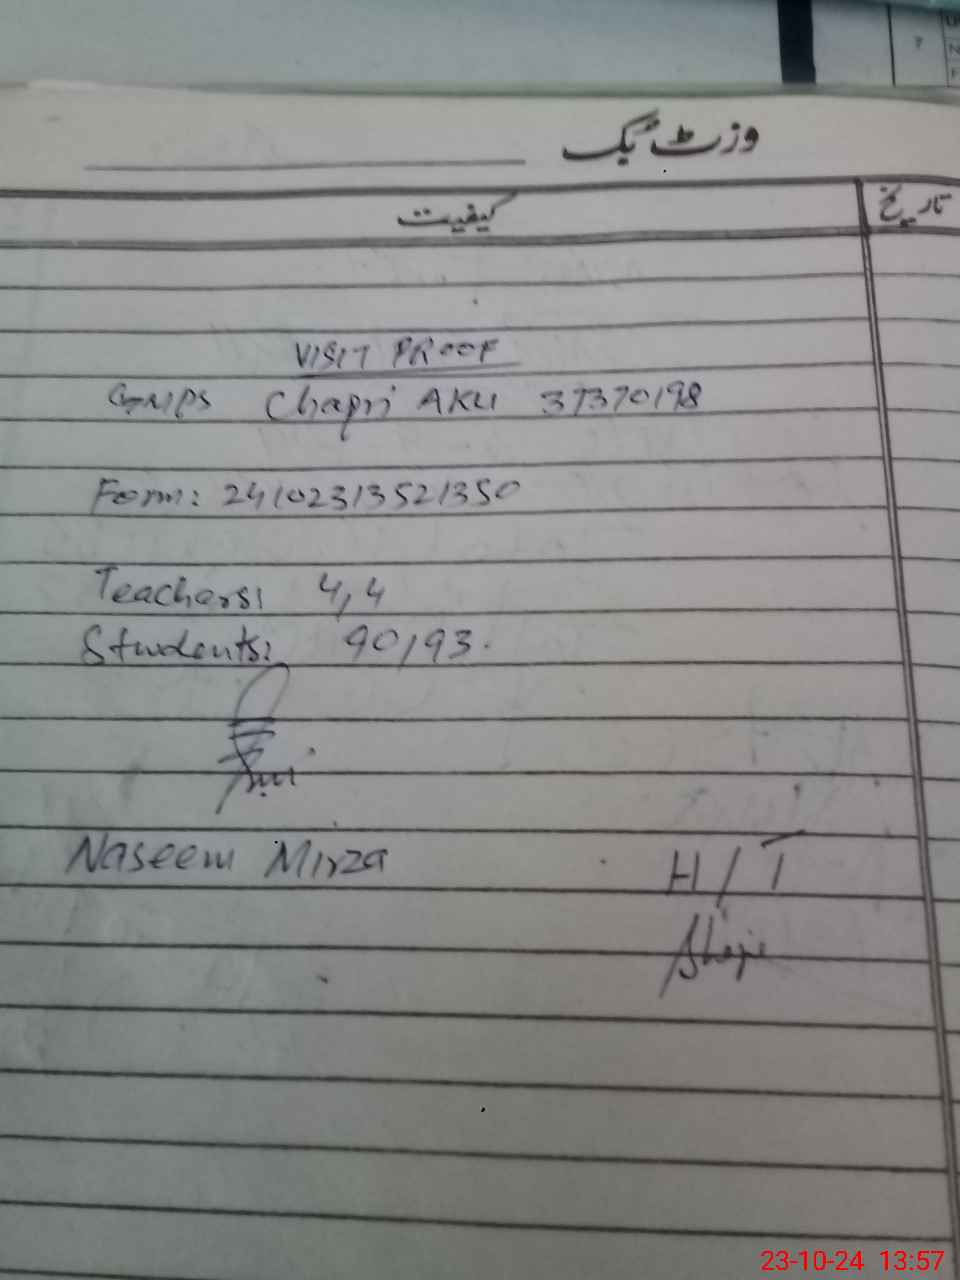 وزٹ بک
کیفیت
تاریخ
VISIT PROOF
GMPS Chapri AKU 37370198
Form: 24102313521350
Teachers: 4,4
Students: 90/93.
Naseem Mirza
H/T
23-10-24 13:57